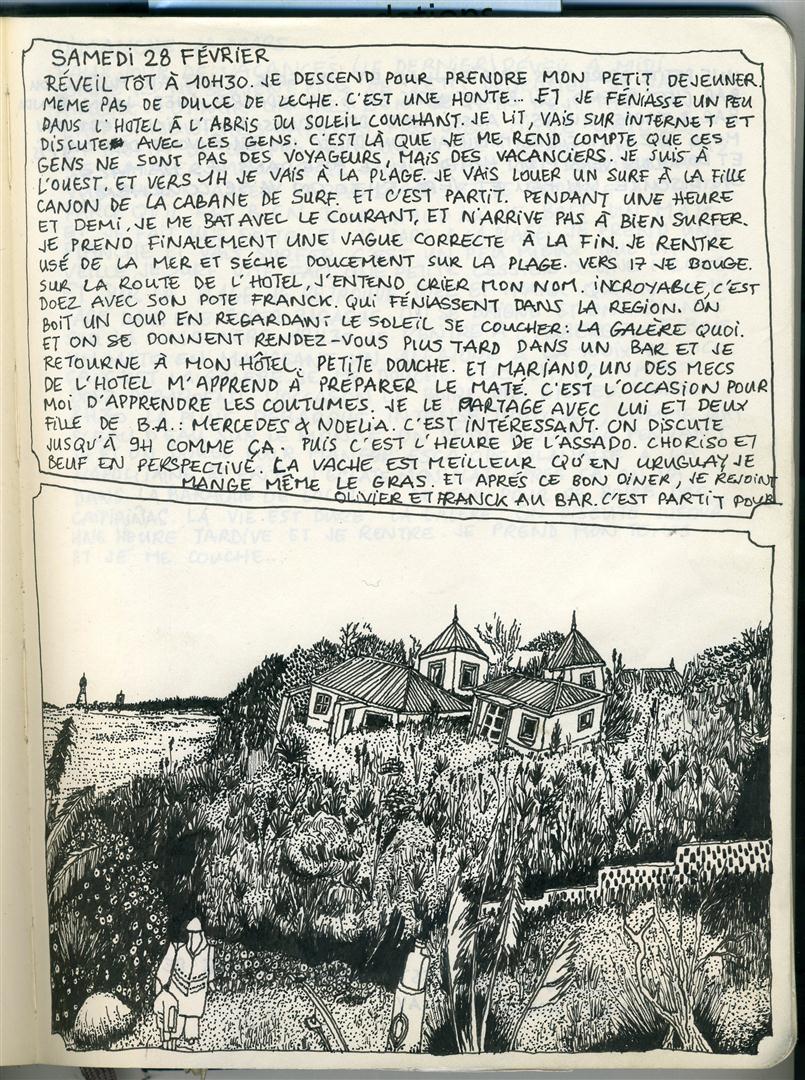 SAMEDI 28 FÉVRIER
RÉVEIL TÔT À 10H30. JE DESCEND POUR PRENDRE MON PETIT DEJEUNER.
MEME PAS DE DULCE DE LECHE. C'EST UNE HONTE... ET JE FÉNIASSE UN PEU
DANS L'HOTEL À L'ABRIS DU SOLEIL COUCHANT. JE LIT, VAIS SUR INTERNET ET
DISCUTE AVEC LES GENS. C'EST LÀ QUE JE ME REND COMPTE QUE CES
GENS NE SONT PAS DES VOYAGEURS, MAIS DES VACANCIERS. JE SUIS À
L'OUEST. ET VERS 1H JE VAIS À LA PLAGE. JE VAIS LOUER UN SURF À LA FILLE
CANON DE LA CABANE DE SURF. ET C'EST PARTIT. PENDANT UNE HEURE
ET DEMI, JE ME BAT AVEC LE COURANT, ET N'ARRIVE PAS À BIEN SURFER.
JE PREND FINALEMENT UNE VAGUE CORRECTE À LA FIN. JE RENTRE
USÉ DE LA MER ET SÉCHE DOUCEMENT SUR LA PLAGE. VERS 17 JE BOUGE.
SUR LA ROUTE DE L'HOTEL, J'ENTEND CRIER MON NOM. INCROYABLE, C'EST
DOEZ AVEC SON POTE FRANCK. QUI FÉNIASSENT DANS LA REGION. ON
BOIT UN COUP EN REGARDANT LE SOLEIL SE COUCHER: LA GALÈRE QUOI.
ET ON SE DONNENT RENDEZ-VOUS PLUS TARD DANS UN BAR ET JE
RETOURNE À MON HÔTEL. PETITE DOUCHE. ET MARIANO, UN DES MECS
DE L'HOTEL M'APPREND À PRÉPARER LE MATÉ. C'EST L'OCCASION POUR
MOI D'APPRENDRE LES COUTUMES. JE LE PARTAGE AVEC LUI ET DEUX
FILLE DE B.A.: MERCEDES & NOELIA. C'EST INTÉRESSANT. ON DISCUTE
JUSQU'À 9H COMME ÇA. PUIS C'EST L'HEURE DE L'ASSADO. CHORISO ET
BEUF EN PERSPECTIVE. LA VACHE EST MEILLEUR QU'EN URUGUAY, JE
MANGE MÊME LE GRAS. ET APRÉS CE BON DINER, JE REJOINT
OLIVIER ET FRANCK AU BAR. C'EST PARTIT POUR